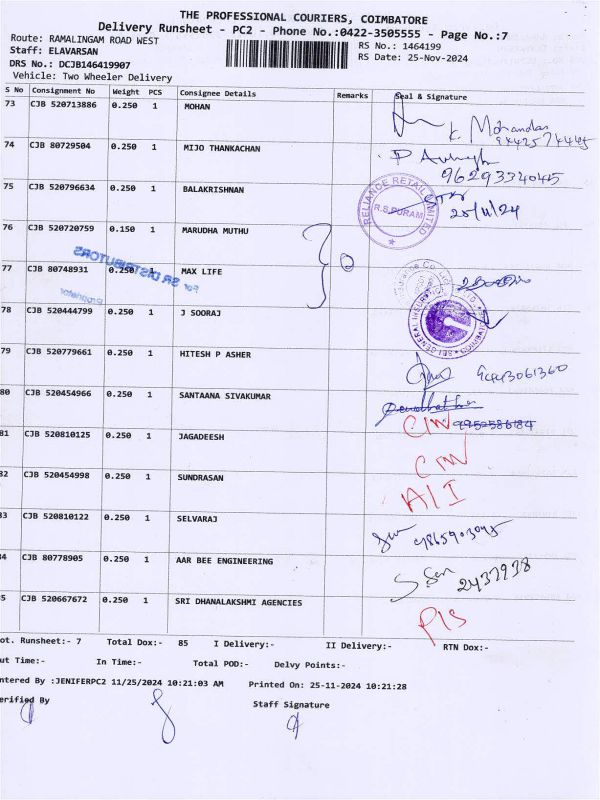 THE PROFESSIONAL COURIERS, COIMBATORE
Delivery Runsheet - PC2 - Phone No.:0422-3505555 - Page No.:7
Route: RAMALINGAM ROAD WEST
RS No.: 1464199
Staff: ELAVARSAN
RS Date: 25-Nov-2024
DRS No.: DCJB146419907
Vehicle: Two Wheeler Delivery
S No Consignment No Weight PCS Consignee Details Remarks Seal & Signature
73 CJB 520713886 0.250 1 MOHAN
K. Mohandas
74 CJB 80729504 0.250 1 MIJO THANKACHAN
9629334045
75 CJB 520796634 0.250 1 BALAKRISHNAN
RELIANCE RETAIL LIMITED
R.S.PURAM
25/11/24
76 CJB 520720759 0.150 1 MARUDHA MUTHU
For SR DISTRIBUTORS
Proprietor
77 CJB 80748931 0.250 1 MAX LIFE
SBI GENERAL INSURANCE
78 CJB 520444799 0.250 1 J SOORAJ
79 CJB 520779661 0.250 1 HITESH P ASHER
9443061360
80 CJB 520454966 0.250 1 SANTAANA SIVAKUMAR
81 CJB 520810125 0.250 1 JAGADEESH
82 CJB 520454998 0.250 1 SUNDRASAN
83 CJB 520810122 0.250 1 SELVARAJ
84 CJB 80778905 0.250 1 AAR BEE ENGINEERING
2437938
85 CJB 520667672 0.250 1 SRI DHANALAKSHMI AGENCIES
ot. Runsheet:- 7 Total Dox:- 85 I Delivery:- II Delivery:- RTN Dox:-
ut Time:- In Time:- Total POD:- Delvy Points:-
ntered By :JENIFERPC2 11/25/2024 10:21:03 AM Printed On: 25-11-2024 10:21:28
erified By Staff Signature